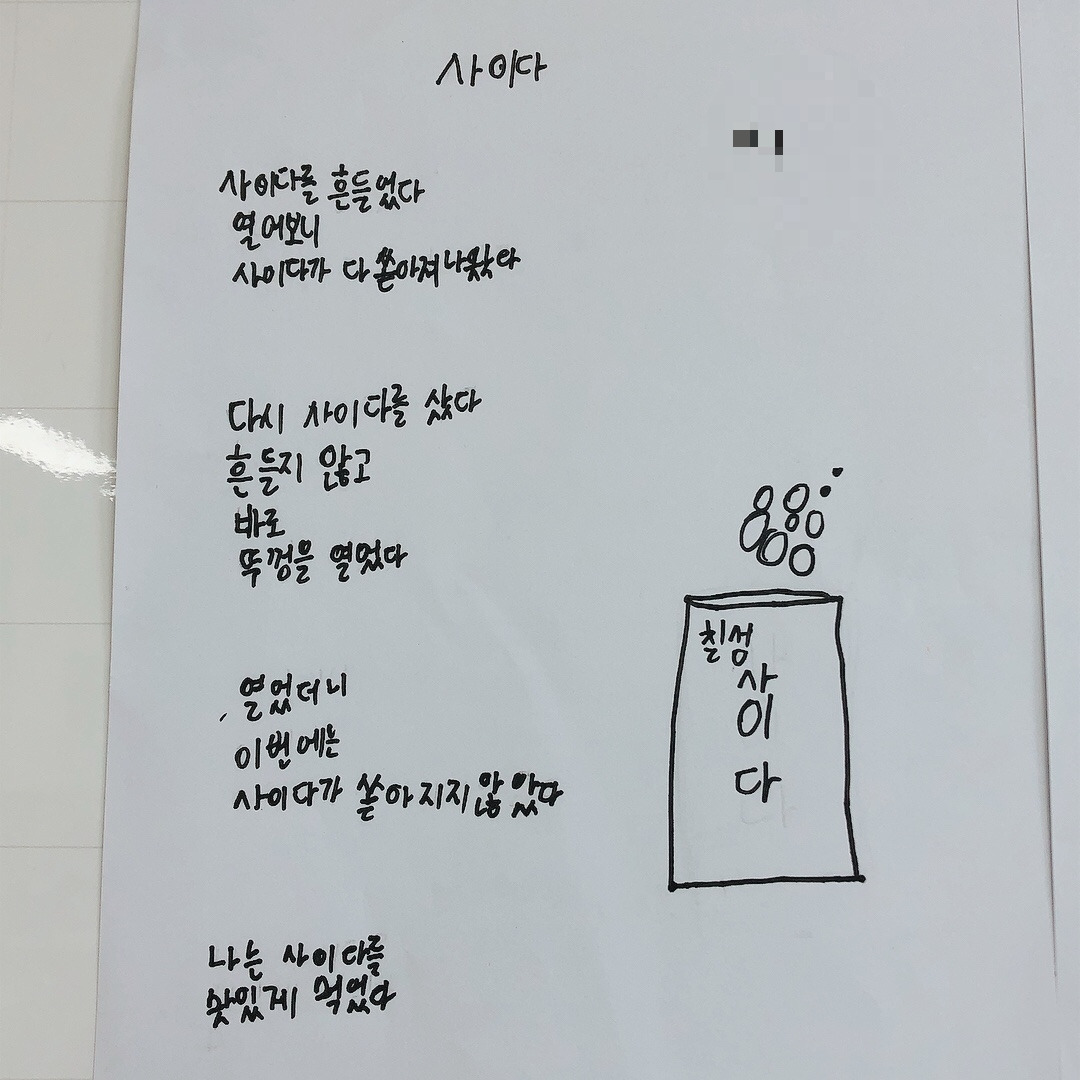 사이다
사이다를 흔들었다
열어보니
사이다가 다 쏟아져 나왔다
다시 사이다를 샀다
흔들지 않고
바로
뚜껑을 열었다
열었더니
이번에는
사이다가 쏟아지지 않았다
나는 사이다를
맛있게 먹었다
칠성
사
이
다